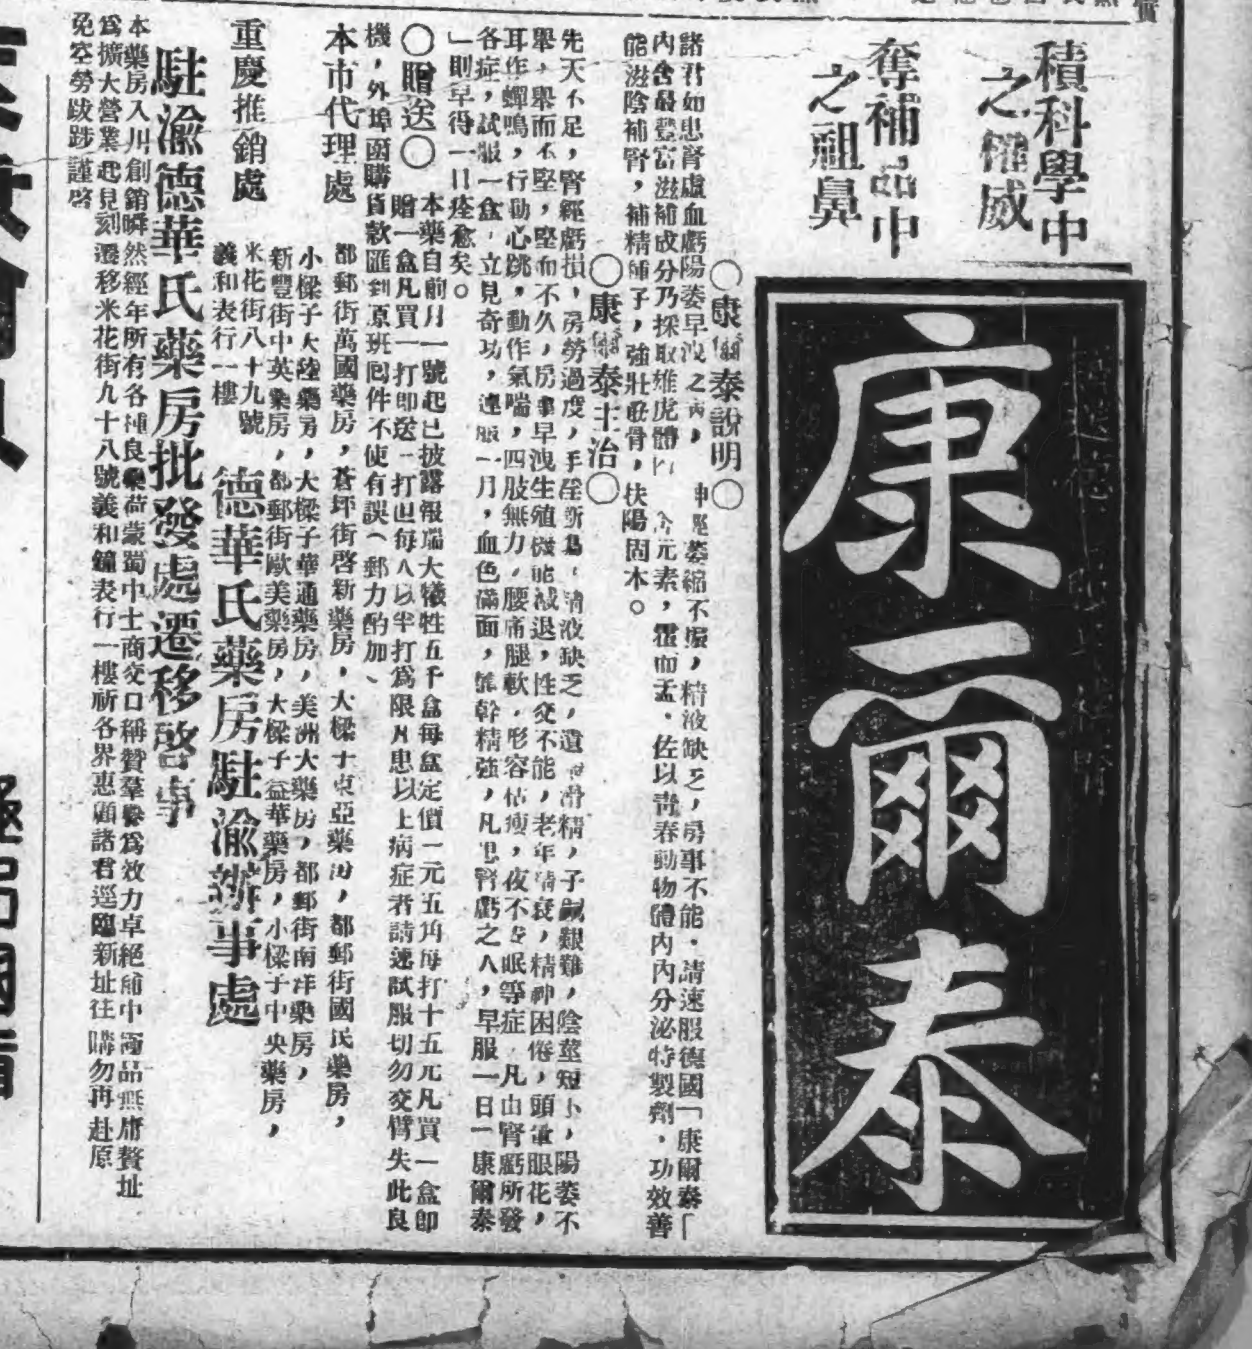 積科學中
之權威
奪補品中
之祖鼻
康爾泰
〇康爾泰說明〇
諸君如患腎虛血虧陽萎早洩之病，神經萎縮不振，精液缺乏，房事不能，請速服德國「康爾泰「
內含最豐富滋補成分乃採取雄虎體內 元素，佐以靑春動物體內內分泌特製劑，功效善
能滋陰補腎，補精種子，強壯筋骨，扶陽固本。
〇康爾泰主治〇
先天不足，腎經虧損，房勞過度，手淫 精液缺乏，遺 滑精，子嗣艱難，陰莖短小，陽萎不
舉，舉而不堅，堅而不久，房事早洩生殖機能減退，性交不能，老年精衰，精神困倦，頭暈眼花，
耳作蟬鳴，行動心跳，動作氣喘，四肢無力，腰痛腿軟，形容枯瘦，夜不 眠等症，凡由腎虧所發
各症，試服一盒，立見奇功，連服一月，血色滿面，體幹精強，凡患腎虧之人，早服一日「康爾泰
」則早得一日痊愈矣。
〇贈送〇
本藥自前月一號起已披露報端大犧牲五千盒每盒定價一元五角每打十五元凡買一盒卽
贈一盒凡買一打卽送一打但每人以半打爲限凡患以上病症者請速試服切勿交臂失此良
機，外埠函購貨款匯到原班囘件不使有誤（郵力酌加、
本市代理處
都郵街萬國藥房，蒼坪街啓新藥房，大樑子東亞藥房，都郵街國民藥房，
小樑子大陸藥房，大樑子華通藥房，美洲大藥房，都郵街南洋藥房，
新豐街中英藥房，都郵街歐美藥房，大樑子益華藥房，小樑子中央藥房，
重慶推銷處
米花街八十九號
義和表行一樓
德華氏藥房駐渝辦事處
駐渝德華氏藥房批發處遷移啓事
本藥房入川創銷瞬然經年所有各種良藥荷蒙蜀中士商交口稱贊羣譽爲效力卓絕補中極品無庸贅址
爲擴大營業起見刻遷移米花街九十八號義和鐘表行一樓祈各界惠顧諸君逕臨新址往購勿再赴原
免空勞跋踄謹啓